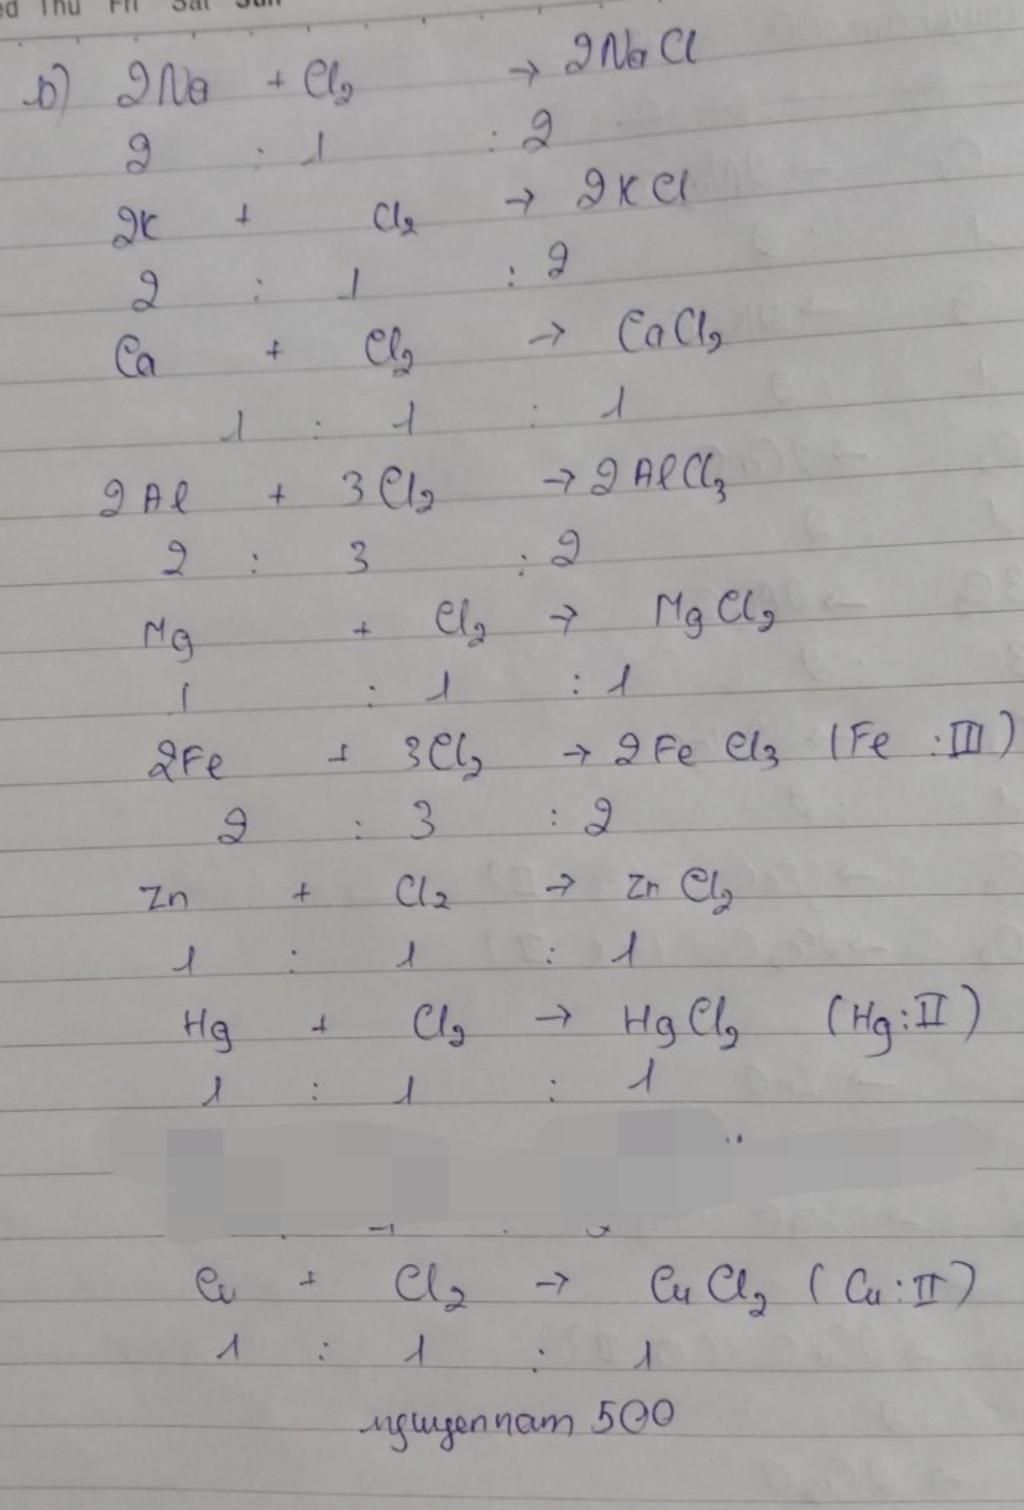 ed Thu Fri Sat Sun
b) 2Na + Cl₂ → 2NaCl
2 : 1 : 2
2K + Cl₂ → 2KCl
2 : 1 : 2
Ca + Cl₂ → CaCl₂
1 : 1 : 1
2Al + 3Cl₂ → 2AlCl₃
2 : 3 : 2
Mg + Cl₂ → MgCl₂
1 : 1 : 1
2Fe + 3Cl₂ → 2FeCl₃ (Fe : III)
2 : 3 : 2
Zn + Cl₂ → ZnCl₂
1 : 1 : 1
Hg + Cl₂ → HgCl₂ (Hg : II)
1 : 1 : 1
Cu + Cl₂ → CuCl₂ (Cu : II)
1 : 1 : 1
nguyennam 500